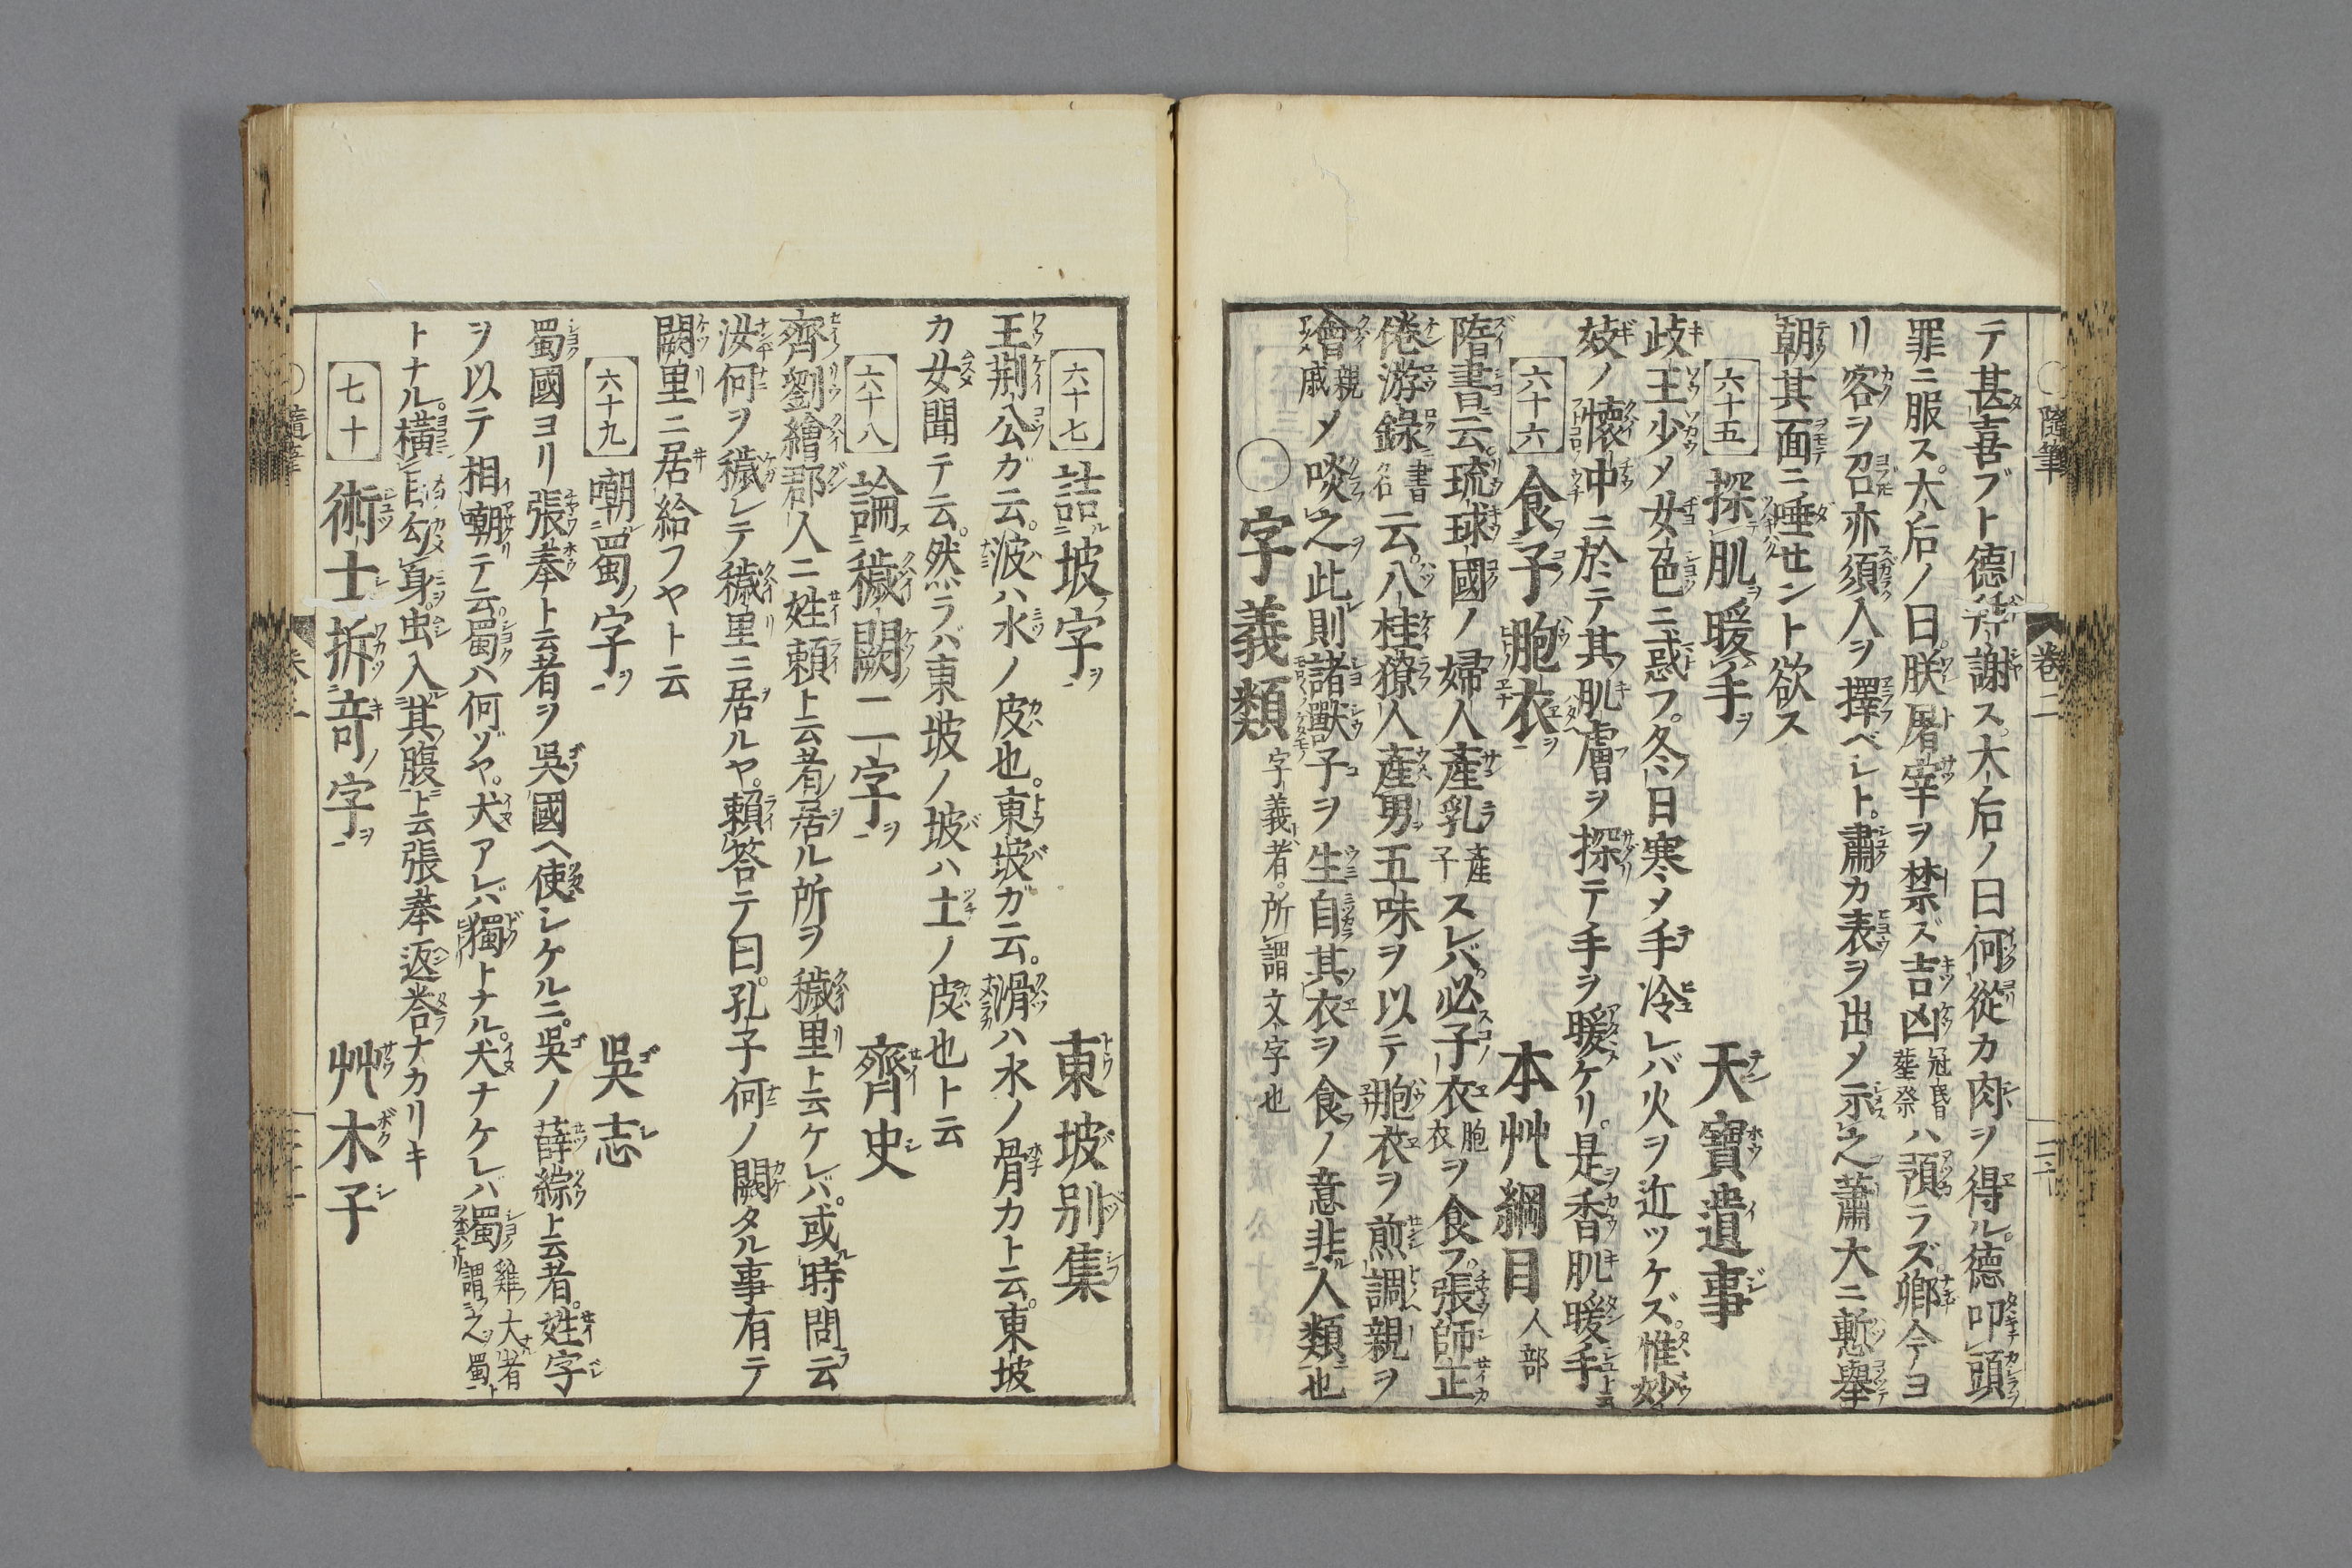 テ甚喜ブト德拜謝ス。大后ノ曰何從カ肉ヲ得ル。德叩頭
罪ニ服ス。大后ノ曰。朕屠宰ヲ禁ズ吉凶冠昏葬祭ハ預ラズ。卿今ヨ
リ客ヲ召亦須入ヲ擇ベレト。肅カ表ヲ出メ示之蕭大ニ慙擧
朝其面ニ唾セント欲ス
六十五 探肌暖手 天寶遺事
歧王少メ女色ニ惑フ。冬日寒メ手冷レバ火ヲ近ツケズ。惟妙
妓ノ懷中ニ於テ其肌膚ヲ探テ手ヲ暖ケリ。是香肌暖手ト云
六十六 食子胞衣 本艸綱目 人部
隋書云。琉球國ノ婦人產乳產子スレバ必子衣胞衣ヲ食フ。張師正
倦游錄書名云。八桂獠人產男五味ヲ以テ胞衣ヲ煎調親ヲ
會親戚メ啖之此則諸獸子ヲ生自其衣ヲ食ノ意非人類也
○字義類 字義者。所謂文字也
隨筆 卷二
六十七 詰坡字 東坡別集
王荆公ガ云。波ハ水ノ皮也。東坡ガ云。滑ハ水ノ骨カト云。東坡
カ女聞テ云。然ラバ東坡ノ坡ハ土ノ皮也ト云
六十八 論穢闕二字 齊史
齊劉繪郡人ニ姓賴ト云者居ル所ヲ穢里ト云ケレバ。或時問云
汝何ヲ穢レテ穢里ニ居ルヤ。賴答テ曰。孔子何ノ闕タル事有テ
闕里ニ居給フヤト云
六十九 嘲蜀字 吳志
蜀國ヨリ張奉ト云者ヲ吳國ヘ使シケルニ。吳ノ薛綜ト云者。姓字
ヲ以テ相嘲テ云。蜀ハ何ゾヤ。犬アレバ獨トナル。犬ナケレバ蜀雞大者謂之蜀
トナル。橫目勾身。虫入其腹ト云張奉返荅ナカリキ
七十 術士拆竒字 艸木子